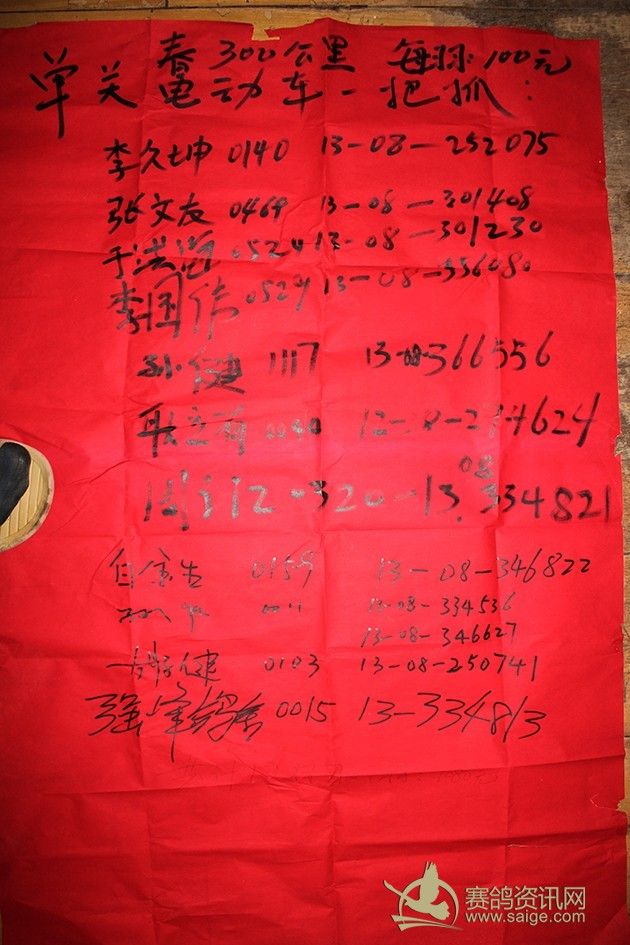 春 300公里 每羽 100元
单关 电动车一把抓：
李久坤 0140 13-08-252075
张文友 0469 13-08-301408
于洪道 0524 13-08-301230
李国伟 0529 13-08-336080
孙健 1117 13-08-366556
12-08-214624
320-13.08 334821
白金生 0159 13-08-346822
0011 13-08-334536
13-08-346627
健 0103 13-08-250741
强军鸽舍 0015 13-334813
赛鸽资讯网
www.saige.com